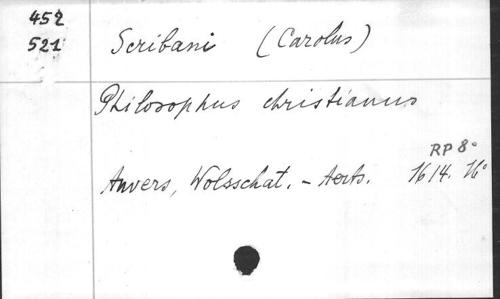 452 Scribani (Carolus)
521
Philosophus christianus
RP 8°
Anvers, Wolsschat. - Aerts. 1614. 16°